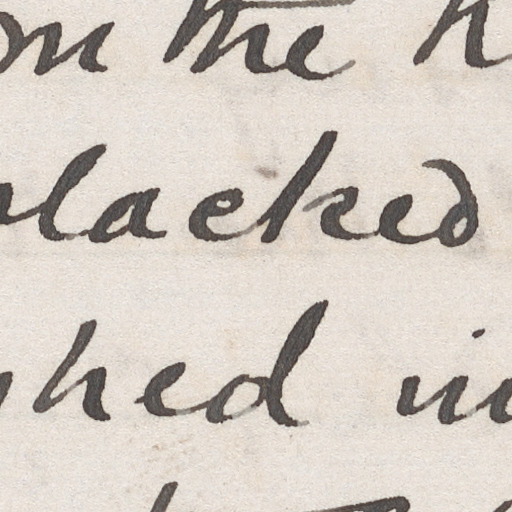 on the
lacked
hed in